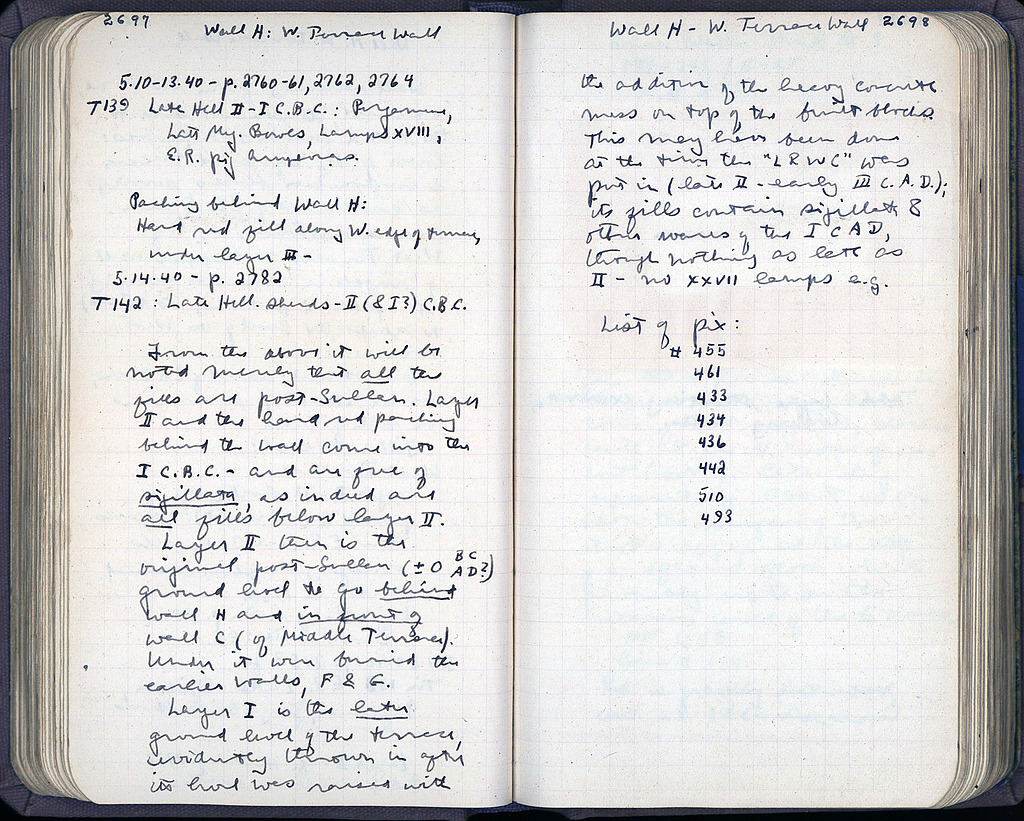 2697
Wall H: W. Terrace Wall
5.10-13.40 - p. 2760-61, 2762, 2764
T139 Late Hell II - I C.B.C.: Pergamene,
Late Meg. Bowls, Lamps XVIII,
E.R. pig amphoras.
Packing behind Wall H:
Hard red fill along W. edge of terrace,
under layer III -
5.14.40 - p. 2782
T142: Late Hell. sherds - II (& I?) C.B.C.
From the above it will be
noted merely that all the
fills are post-Sullan. Layer
II and the hard red packing
behind the wall come into the
I C.B.C. - and are free of
sigillata, as indeed are
all fills below layer II.
Layer II then is the
original post-Sullan (±0 BC AD?)
ground level to go behind
wall H and in front of
wall C (of Middle Terrace).
Under it, were buried the
earlier walls, F & G.
Layer I is the later
ground level of the terrace,
evidently thrown in after
its level was raised with
2698
Wall H - W. Terrace Wall
the addition of the heavy concrete
mess on top of the built blocks.
This may have been done
at the time the "LRWC" was
put in (late II - early III C.A.D.);
its fills contain sigillata &
other wares of the I C AD,
though nothing as late as
II - no XXVII lamps e.g.
List of pix:
# 455
461
433
434
436
442
510
493